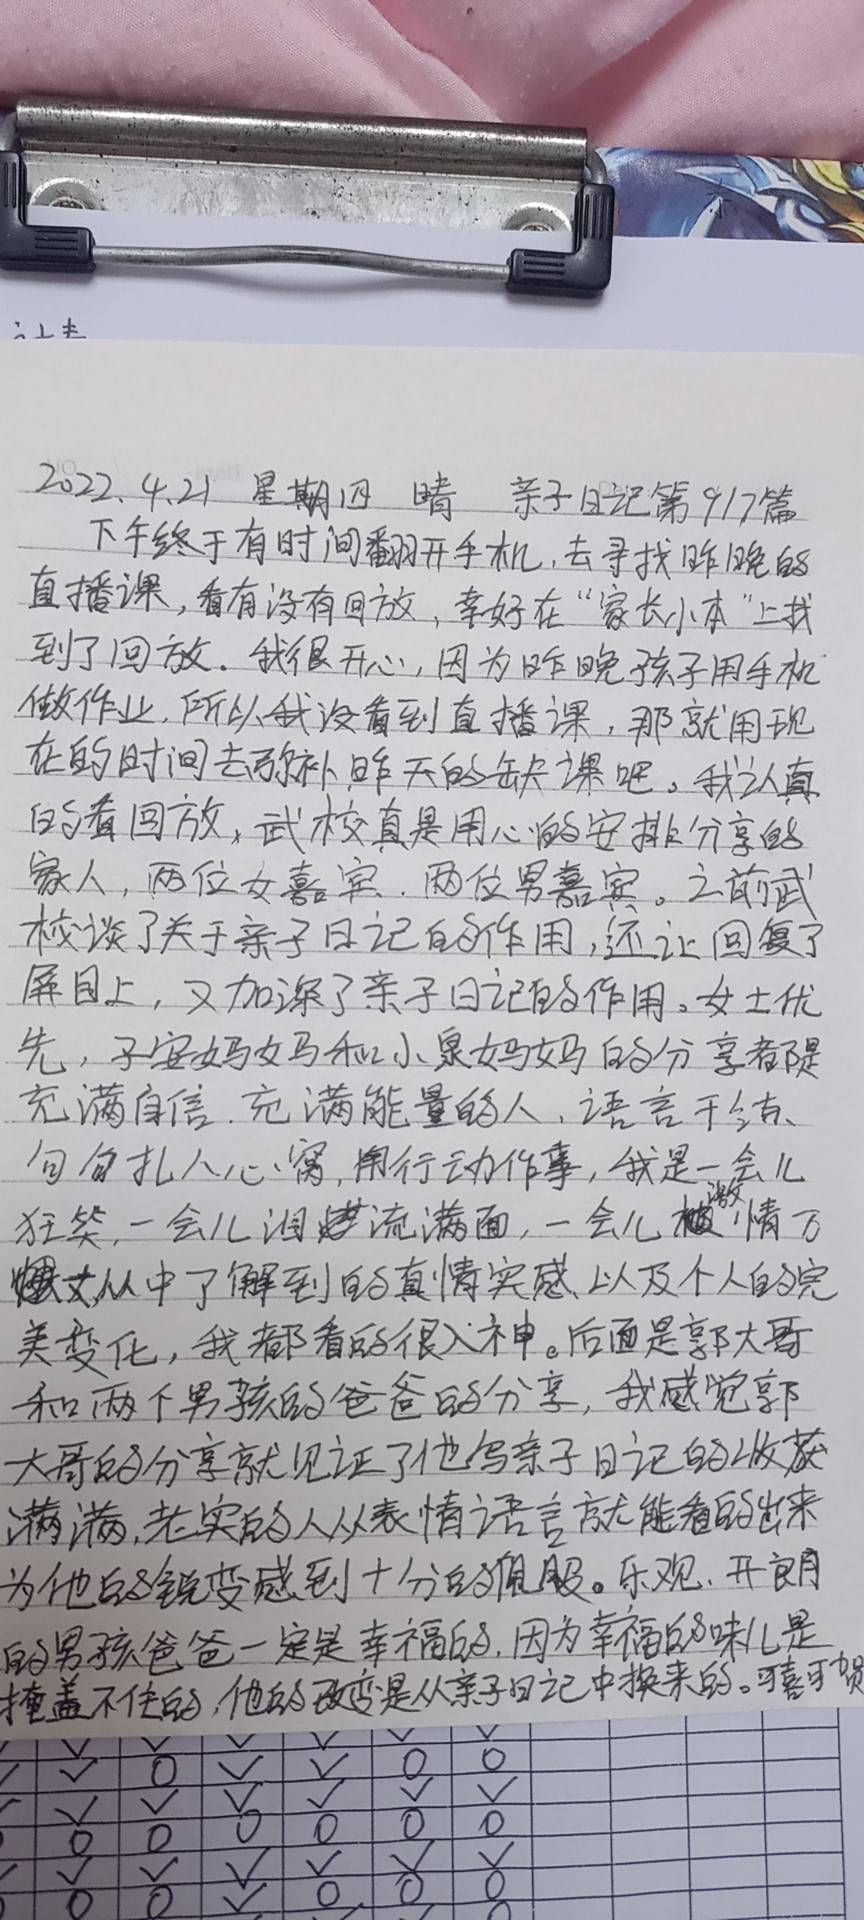 2022.4.21 星期四 晴 亲子日记第917篇
下午终于有时间翻开手机,去寻找昨晚的
直播课,看有没有回放,幸好在“家长小本”上找
到了回放。我很开心,因为昨晚孩子用手机
做作业,所以我没看到直播课,那就用现
在的时间去弥补昨天的缺课吧。我认真
的看回放,武校真是用心的安排分享的
家人,两位女嘉宾、两位男嘉宾。之前武
校谈了关于亲子日记的作用,还让回复了
屏目上,又加深了亲子日记的作用。女士优
先,子安妈妈和小泉妈妈的分享都是
充满自信、充满能量的人,语言干结、
句句扎人心窝,用行动作事,我是一会儿
狂笑,一会儿泪流满面,一会儿激情万
从中了解到的真情实感、以及个人的完
美变化,我都看的很入神。后面是郭大哥
和两个男孩的爸爸的分享,我感觉郭
大哥的分享就见证了他写亲子日记的收获
满满,老实的人从表情语言就能看的出来
为他的锐变感到十分的佩服。乐观、开朗
的男孩爸爸一定是幸福的,因为幸福的味儿是
掩盖不住的,他的改变是从亲子日记中换来的。可喜可贺